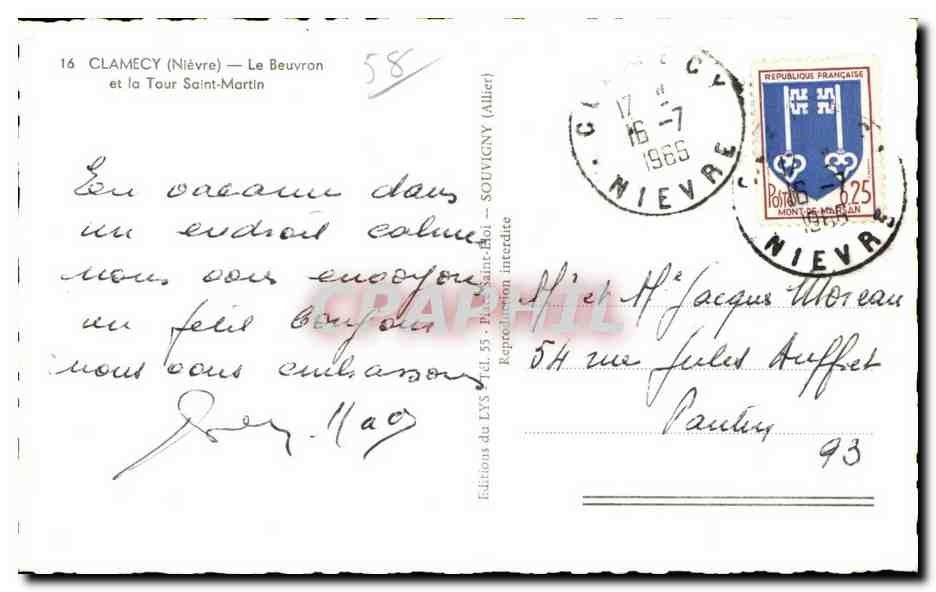 16 CLAMECY (Nièvre) — Le Beuvron
et la Tour Saint-Martin
58
En vacances dans
un endroit calme
nous vous envoyons
un petit bonjour
nous vous embrassons
Editions du LYS - Tél. 55 - Place Saint-Eloi - SOUVIGNY (Allier)
Reproduction interdite
CLAMECY
17
16 -7
1966
NIEVRE
REPUBLIQUE FRANÇAISE
POSTES 0,25
MONT-DE-MARSAN
16 -7
1966
NIEVRE
Mr et Me Jacques Moreau
54 rue Jules Auffret
Pantin
93
CPAPHIL